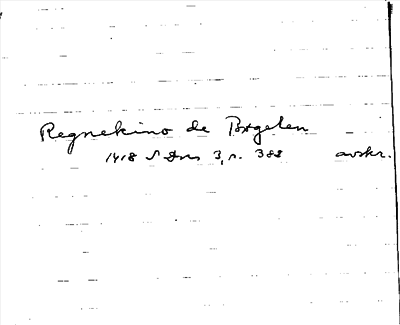 Regnekino de Bygelen
1418 SDns 3, s. 388 avskr.